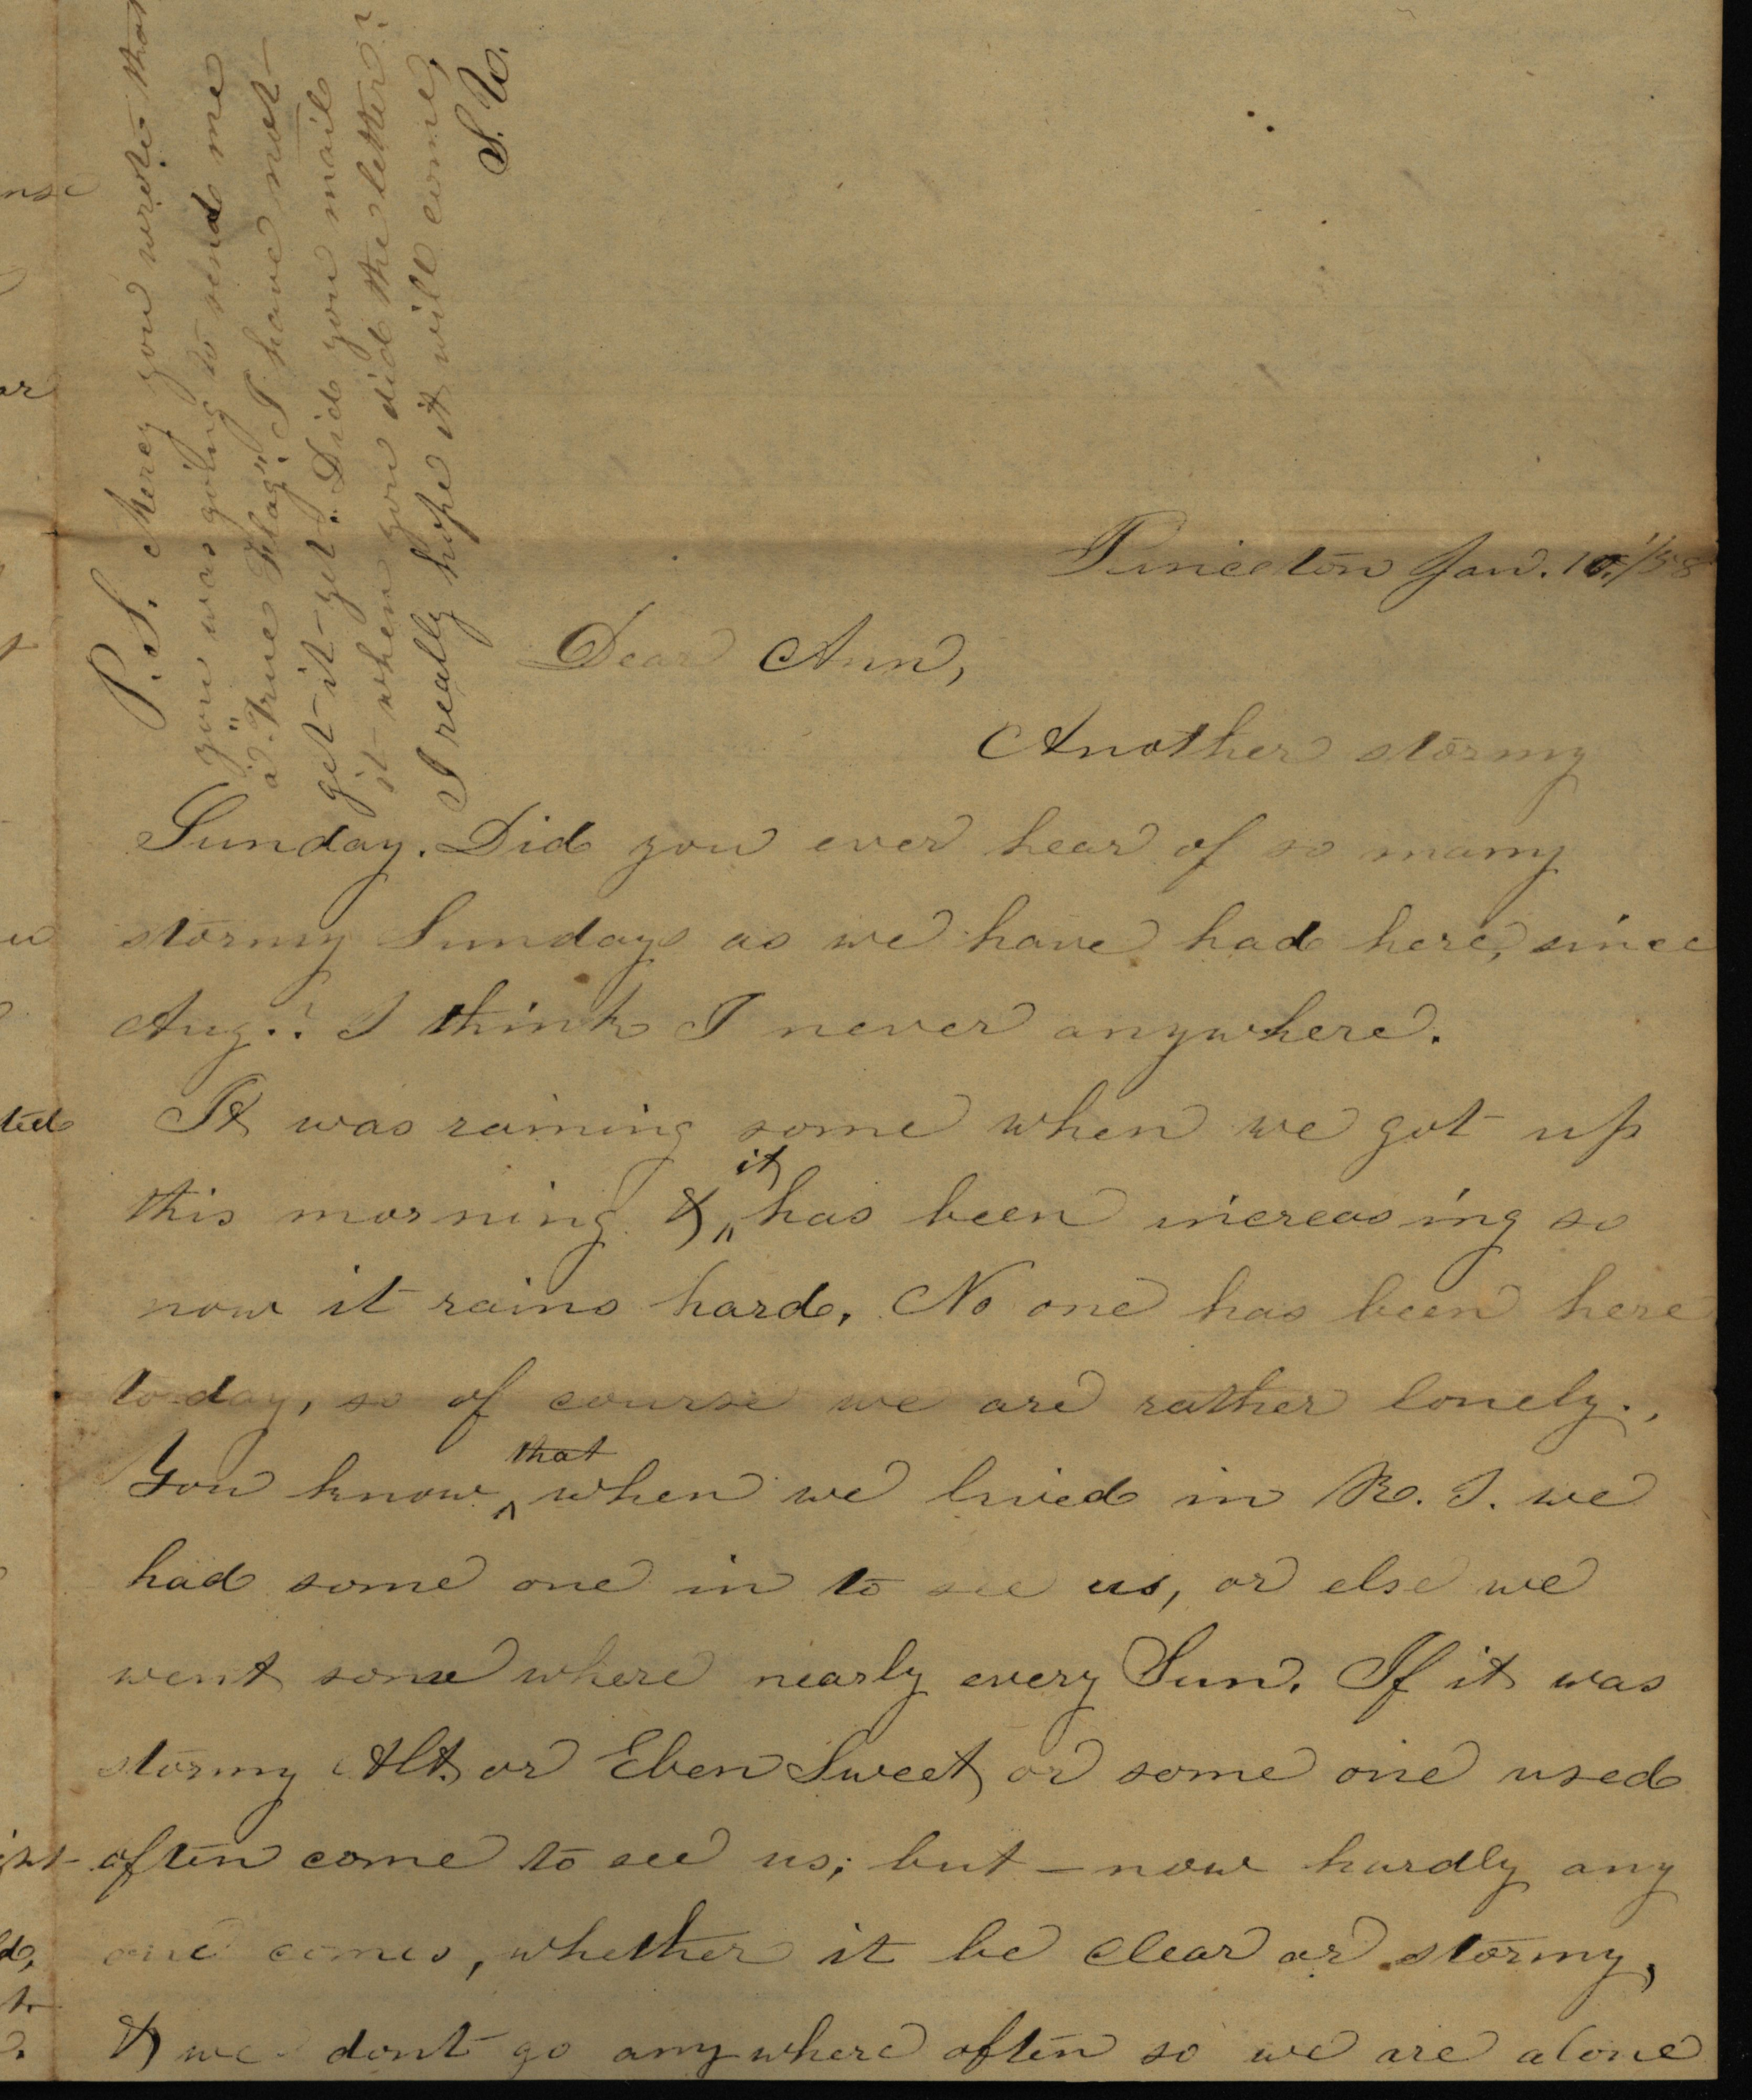 Princeton Jan. 10./58
Dear Ann,
Another stormy
Sunday. Did you ever hear of so many
stormy Sundays as we have had here, since
Aug.? I think I never anywhere.
It was raining some when we got up
this morning & it has been increasing so
now it rains hard. No one has been here
to-day, so of course we are rather lonely.
You know that when we lived in R. I. we
had some one in to see us, or else we
went some where nearly every Sun. If it was
stormy Alt. or Eben Sweet or some one used
often come to see us; but now hardly any
one comes, whether it be clear or stormy,
& we dont go anywhere often so we are alone
P. S. Mercy you wrote that
you was going to send me
a "True Flag". I have not
get it yet. Did you mail
it when you did the letter?
I really hope it will come.
S. W.